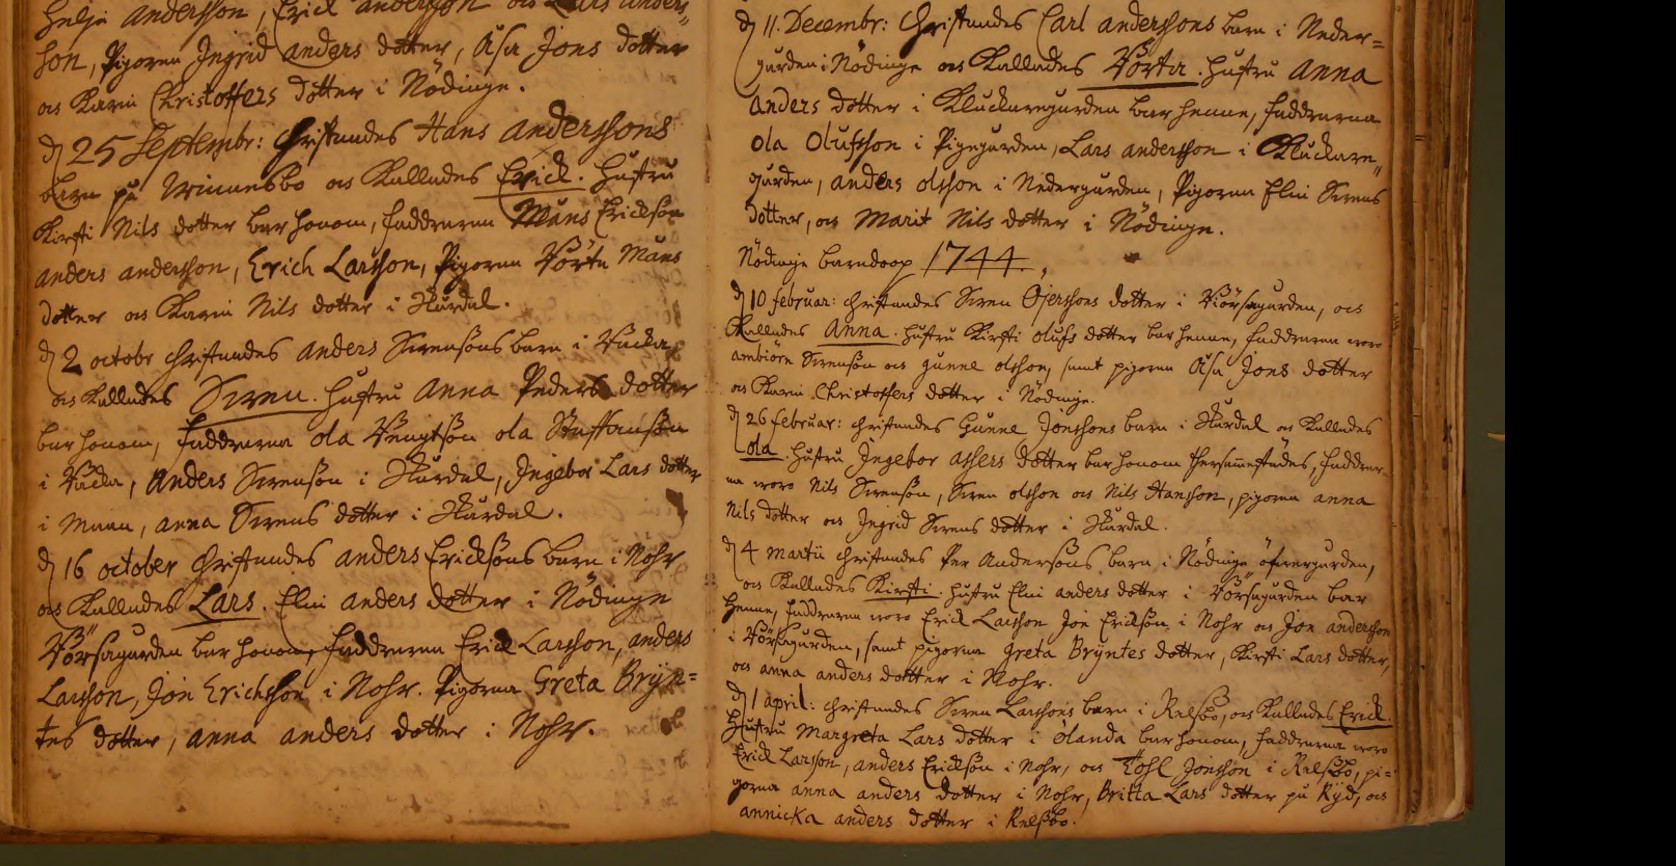 Helje Andersson, Erick Andersson ock Lars Anders„
son, Pigorna Ingrid anders dotter, Åsa Jons dotter
ock Karin Christoffers dotter i Nödinge.
d 25 Septembr: Christnades Hans Anderssons
barn på Wimmesbo ock Kallades Erick. Hustru
Kirsti Nils dotter bar honom, fadderna Måns Erickson
anders andersson, Erich Larsson, Pigorna Börta Måns
dotter ock Karin Nils dotter i Skårdal.
d 2 octobr christnades anders Swensöns barn i Backa,
ock Kallades Swen. Hustru Anna Peders dotter
bar honom, faddrarna ola Bengtsön ola Staffansön
i Backa, Anders Swensön i Skårdal, Ingebor Lars dotter
i Maan, anna Swens dotter i Skårdal.
d 16 october christnades anders Ericksöns barn i Nohr
ock Kallades Lars. Elin anders dotter i Nödinge
Börsagården bar honom, faddrarna Erick Larsson, anders
Larsson, Jon Erichsson i Nohr. Pigorna Greta Bryn=
tes dotter, anna anders dotter i Nohr.
d 11. Decembr: Christnades Carl anderssons barn i Neder=
gården i Nödinge ock Kallades Börta. Hustru Anna
Anders dotter i Kluckaregården bar henne, faddrarna
Ola Olufsson i Pigegården, Lars andersson i Kluckare„
gården, anders olsson i Nedergården, Pigorna Elin Swens
dotter, ock Marit Nils dotter i Nödinge.
Nödinge barndoop 1744.
d 10 februar: christnades Swen Ojerssons dotter i Börsagården, ock
Kallades Anna. Hustru Kirsti olufs dotter bar henne, faddrarna woro
ambiörn Swensön ock gunne olsson, samt pigorna Åsa Jons dotter
ock Karin Christoffers dotter i Nödinge.
d 26 februar: christnades Gunne Jonssons barn i Skårdal ock Kallades
ola. Hustru Ingebor assers dotter bar honom thersammestädes, faddrar„
na woro Nils Swensön, Swen olsson ock Nils Hansson, pigorna anna
Nils dotter ock Ingrid Swens dotter i Skårdal.
d 4 martii christnades Per Andersöns barn i Nödinge öfwergården,
ock Kallades Kirsti. Hustru Elin anders dotter i Börsagården bar
henne, faddrarna woro Erick Larsson Jon Ericksön i Nohr ock Jon andersson
i Börsagården, samt pigorna greta Bryntes dotter, Kirsti Lars dotter,
ock anna anders dotter i Nohr.
d 1 april: christnades Swen Larssons barn i Relsbo, ock Kallades Erick.
Hustru Margreta Lars dotter i ölanda bar honom, faddrarna woro
Erick Larsson, anders Ericksön i Nohr, ock Kohl Jonsson i Relsbo, pi=
gorna anna anders dotter i Nohr, Britta Lars dotter på Ryd, ock
annicka anders dotter i Relsbo.